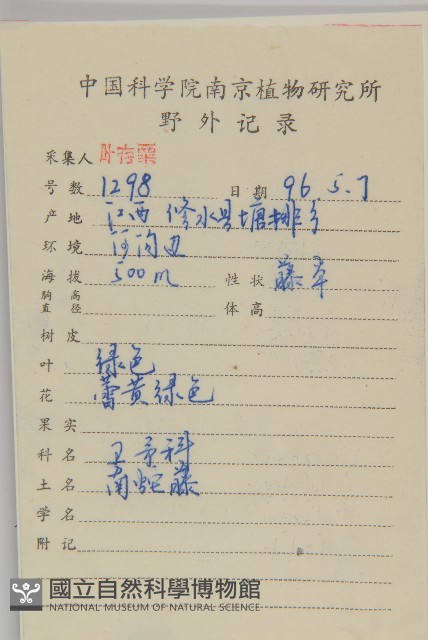 中国科学院南京植物研究所
野外记录
采集人 叶存粟
号数 1298 日期 96 5.7
产地 江西 修水县塘排乡
环境 河沟边
海拔 500m 性状 藤本
胸高直径 体高
树皮
叶 绿色
花 蕾黄绿色
果实
科名 卫矛科
土名 南蛇藤
学名
附记
國立自然科學博物館
NATIONAL MUSEUM OF NATURAL SCIENCE